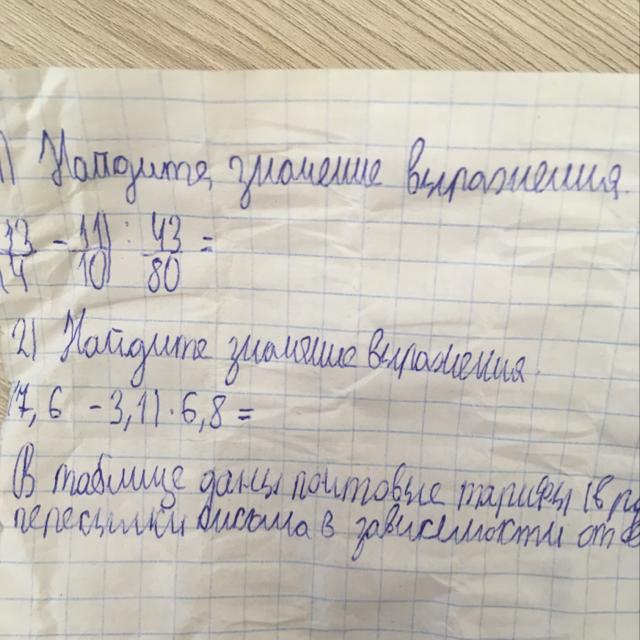 1) Найдите значение выражения.
(13/4 - 11/10) : 43/80 =
2) Найдите значение выражения.
(7,6 - 3,1) · 6,8 =
(В таблице даны почтовые тарифы (в
пересылки письма в зависимости от